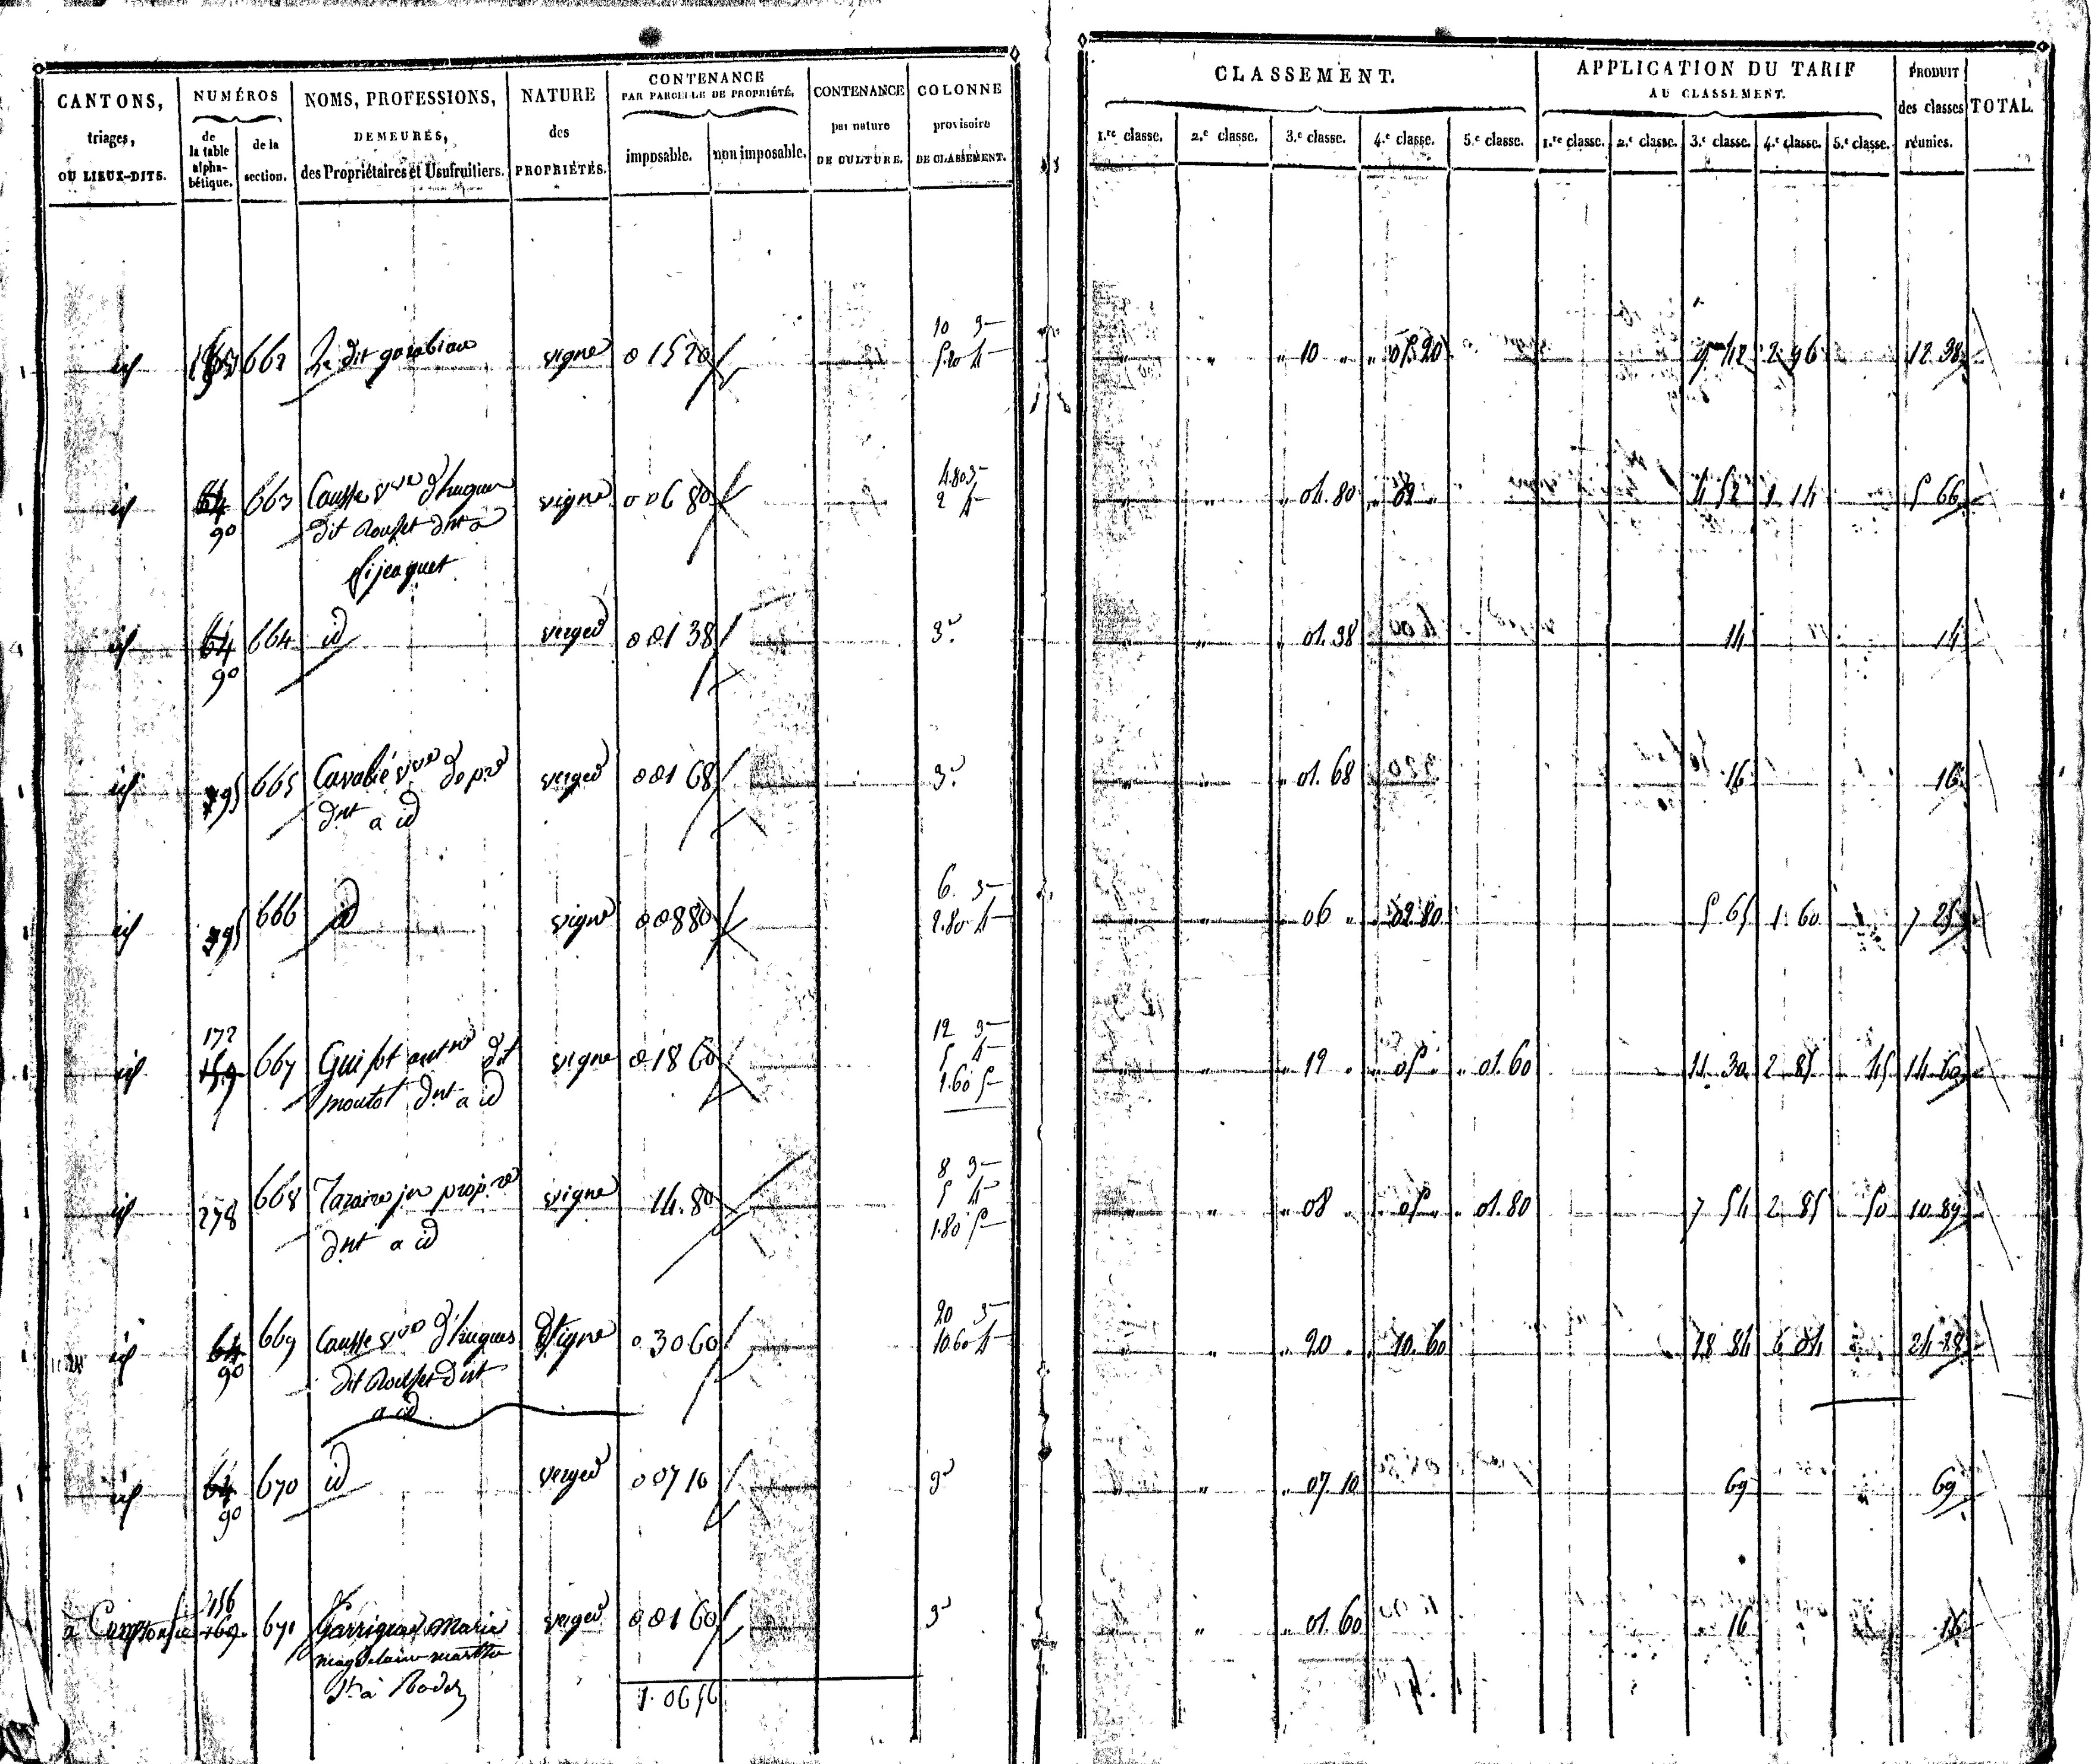 CANTONS,
triages,
OU LIEUX-DITS.
NUMÉROS
de la table alpha-bétique.
de la section.
NOMS, PROFESSIONS,
DEMEURES,
des Propriétaires et Usufruitiers.
NATURE
des
PROPRIÉTÉS.
CONTENANCE
PAR PARCELLE DE PROPRIÉTÉ.
imposable.
non imposable.
CONTENANCE
par nature
DE CULTURE.
COLONNE
provisoire
DE CLASSEMENT.
CLASSEMENT.
1.re classe. 2.e classe. 3.e classe. 4.e classe. 5.e classe.
APPLICATION DU TARIF
AU CLASSEMENT.
1.re classe. 2.e classe. 3.e classe. 4.e classe. 5.e classe.
PRODUIT
des classes
réunies.
TOTAL.
id 662 vigne 0 15 20 10 3 5.20 4 " " " 10 " " 05.20 9 42 2 96 12 38
id 64 90 663 Causse vve d'hugues vigne 0 06 80 4.80 3 2 4 " " 04.80 " 02 " 4 52 1 14 5 66
dit Rouset dnt a
id 64 90 664 id verger 0 01 38 3e " " 01.38 14 14
id 395 665 verger 0 01 68 3e " " 01.68 16 16
dnt a id
id 395 666 id vigne 0 08 80 6 3 2.80 4 " " 06 " 02.80 5 65 1 60 7 25
id 172 159 667 dit vigne 0 18 60 12 3 5 4 1.60 5 " " 12 " " 05 " " 01.60 11 30 2 85 45 14 60
moutot dnt a id
id 278 668 vigne 14.80 8 3 5 4 1.80 5 " " 08 " " 05 " " 01.80 7 54 2 85 50 10 89
dnt a id
id 64 90 669 Causse vve d'hugues vigne 0 30 60 20 3 10.60 4 " " 20 " " 10.60 18 84 6 04 24 88
dit Rouset dnt
a id
id 64 90 670 id verger 0 07 10 3e " " 07.10 69 69
à 156 169 671 Marie verger 0 01 60 3e " " 01.60 16 16
magdelaine
à Rodez
1.06 56